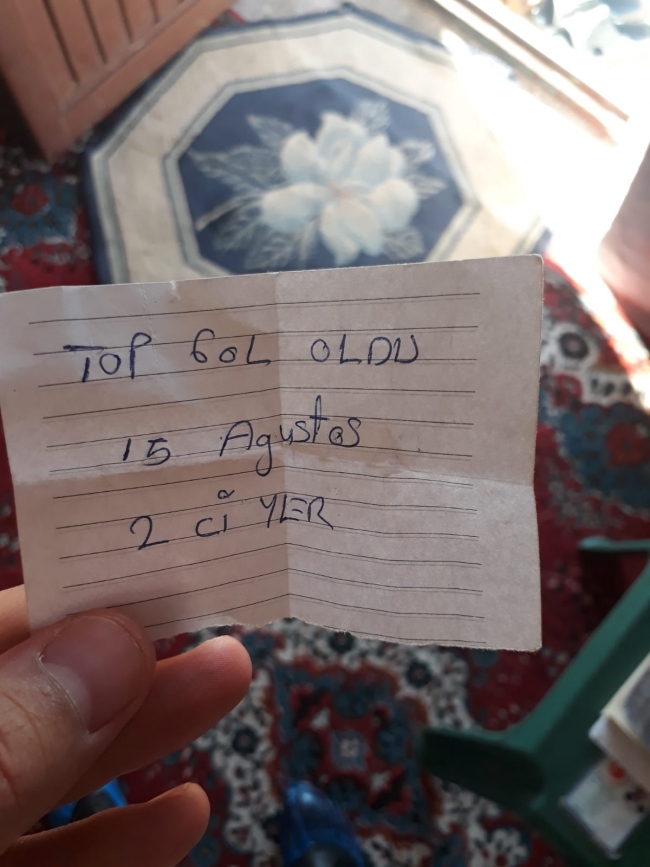 TOP GOL OLDU
15 Agustos
2 ci YLER